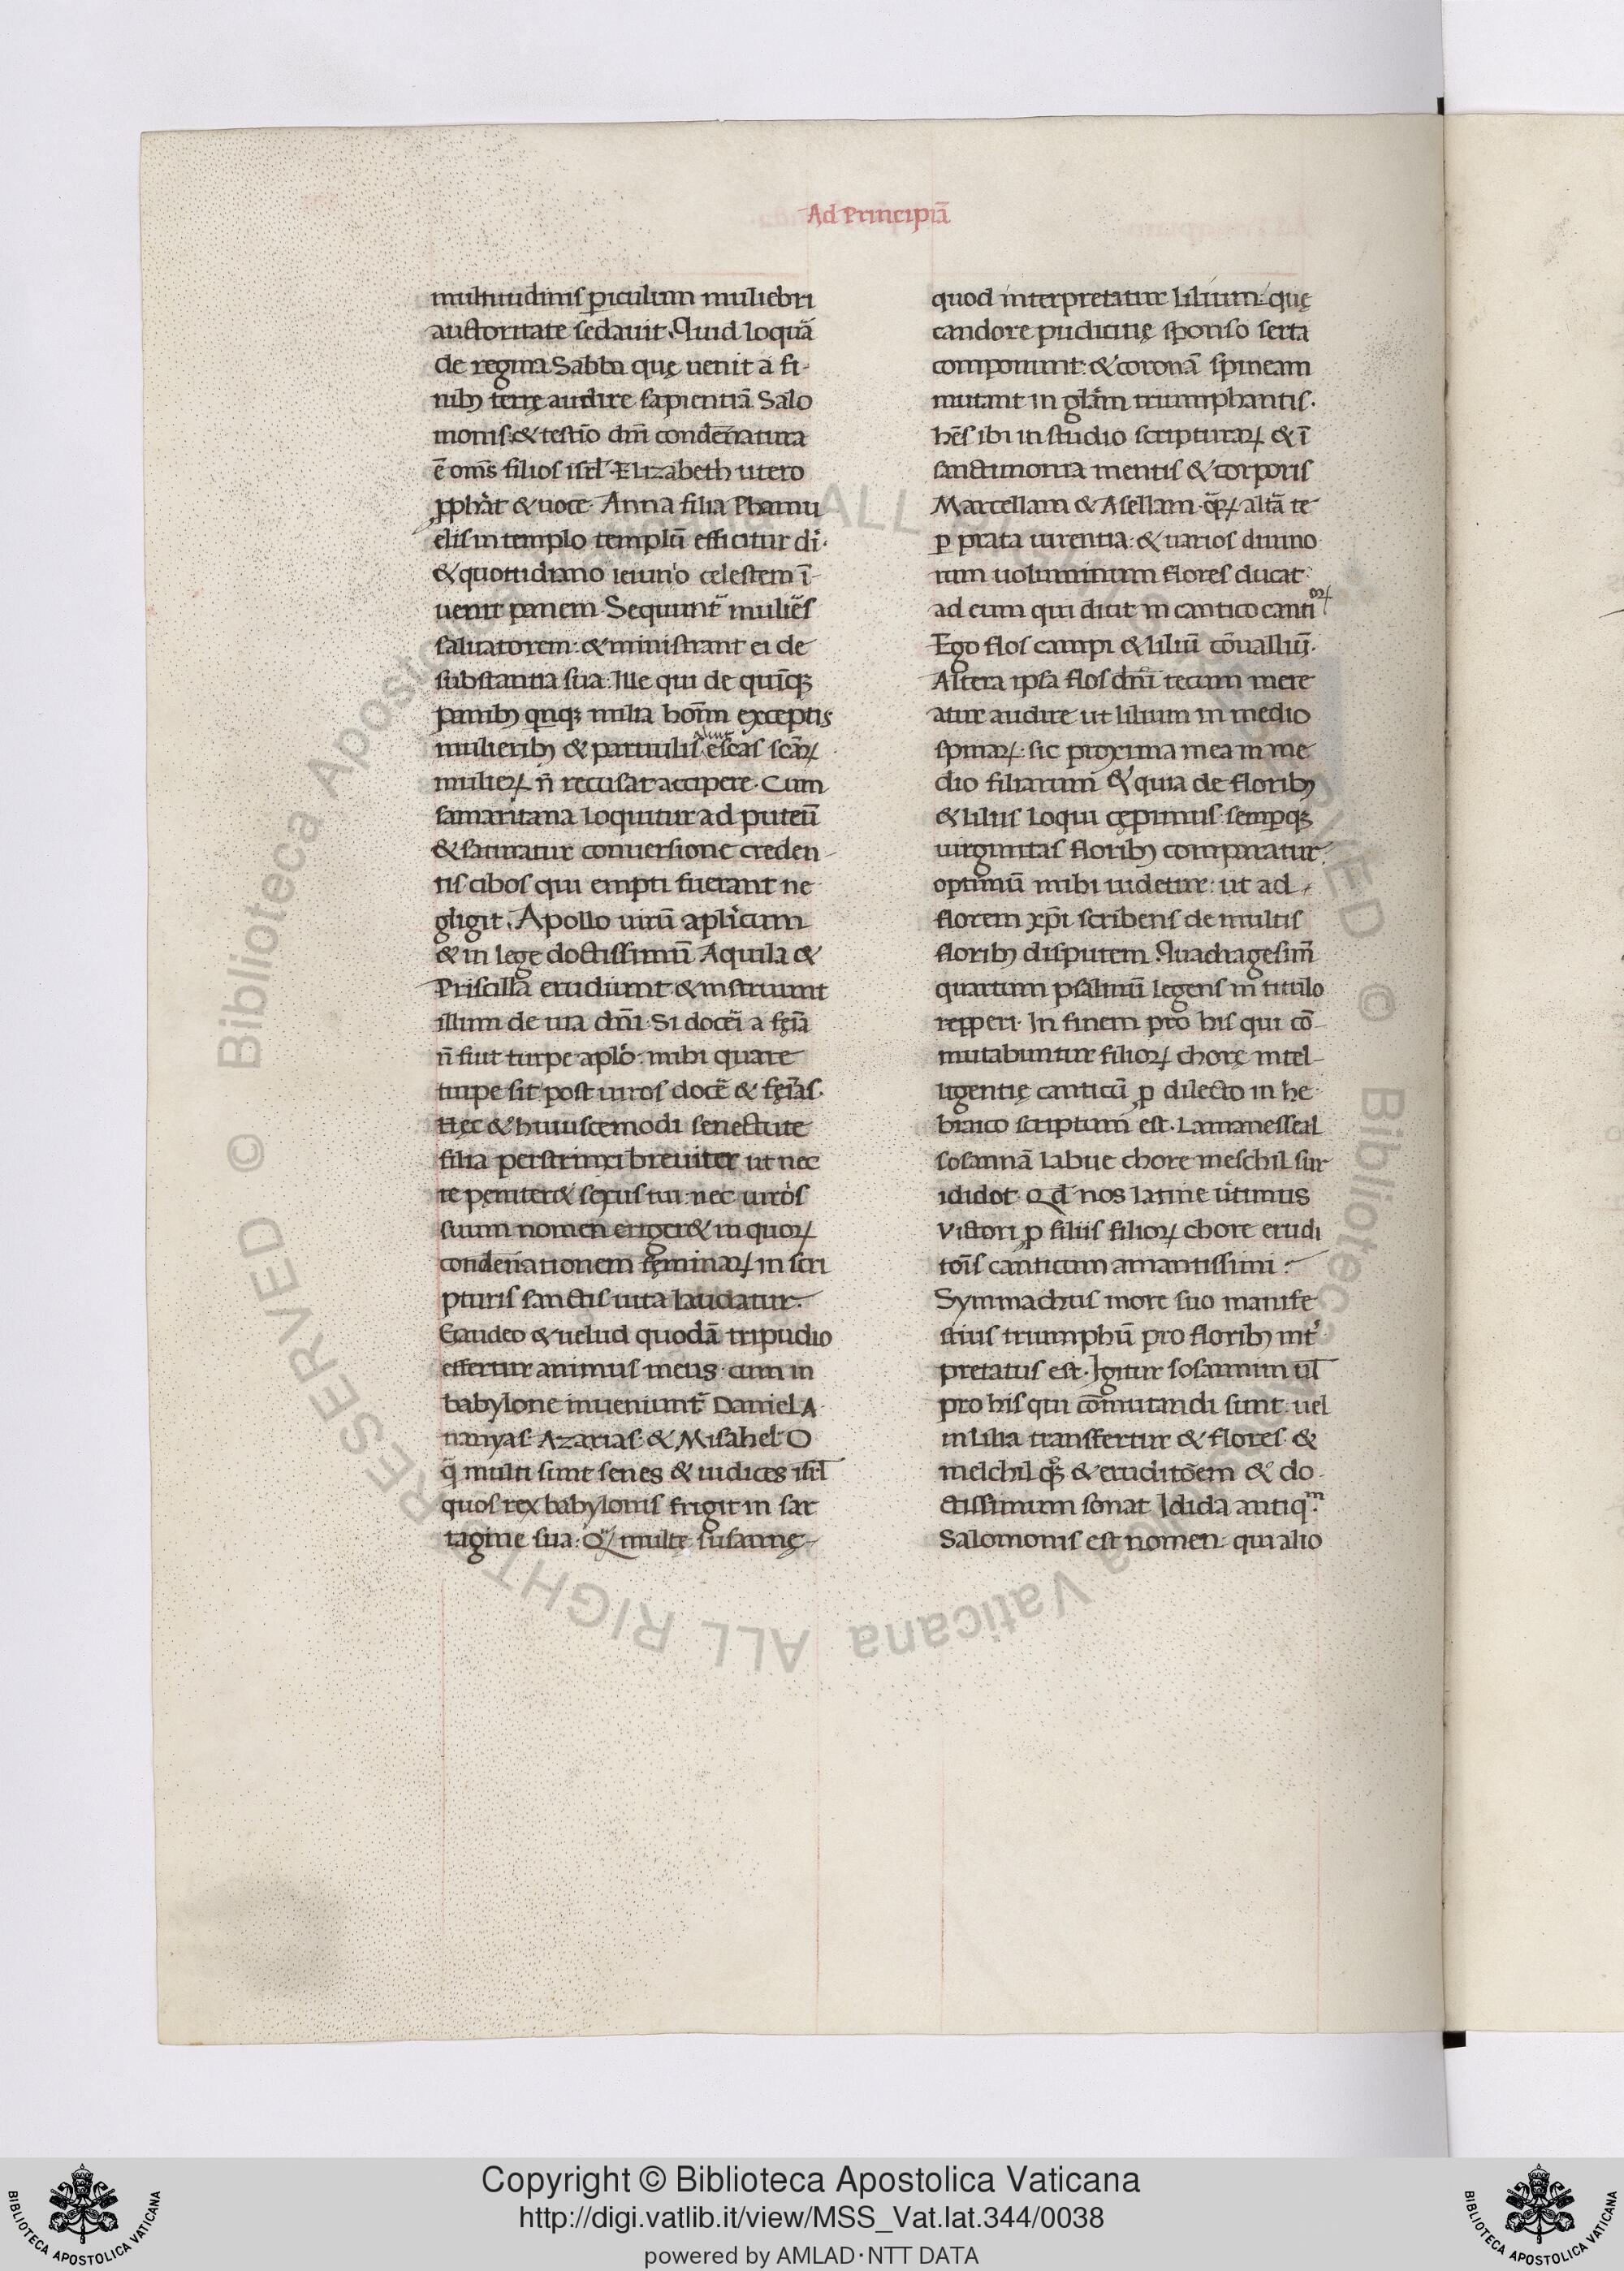 Ad Principiā
multitudinis ꝑiculum muliebri
auctoritate sedauit. Quid loquā
de regina Sabba quę uenit a fi-
nibꝫ terrę audire sapientiā Salo
monis: & testīo dn̄i condēnatura
ē om̄s filios isrl̄. Elizabeth utero
ꝓphàt & uoce. Anna filia Phanu
elis in templo templū efficitur di.
& quottidiano ieiunio celestem ī-
uenit panem. Sequunt̄ muliēs
saluatorem: & ministrant ei de
substantia sua. Ille qui de quīqꝫ
panibꝫ qnqꝫ milia hoīm exceptis
mulieribꝫ & paruulis aluit escas scāꝝ
mulieꝝ n̄ recusat accipere. Cum
samaritana loquitur ad puteū
& saturatur conuersione creden-
tis cibos qui empti fuerant ne
gligit. Apollo uirū aplicum
& in lege doctissimū Aquila &
Priscilla erudiunt & instruunt
illum de uia dn̄i. Si docēi a fęīa
n̄ fuit turpe aplo: mihi quare
turpe sit post uiros docē & fęīas.
Hęc & huiuscemodi senectute
filia perstrinxi breuiter ut nec
te pęniter& sexus tui: nec uiros
suum nomen eriger& in quoꝝ
condēnationem fęminaꝝ in scri
pturis sanctis uita laudatur.
Gaudeo & uelud quodā tripudio
effertur animus meus. cum in
babylone inueniunt̄ Daniel A
nanyas Azarias & Misahel O
q̄ multi sunt senes & iudices isrl̄
quos rex babylonis frigit in sar
tagine sua. Qꝫ multę susannę
quod interpretatur lilium: quę
candore pudicitię sponso serta
componunt: & coronā spineam
mutant in gl̄am triumphantis.
hēs ibi in studio scripturaꝝ & ī
sanctimonia mentis & corporis
Marcellam & Asellam. qꝝ altā te
ꝑ prata uirentia: & uarios diuino
rum uoluminum flores ducat
ad eum qui dicit in cantico canti oꝝ
Ego flos campi & liliū cōualliū.
Altera ipsa flos dn̄i tecum mere
atur audire ut lilium in medio
spinaꝝ: sic proxima mea in me
dio filiarum & quia de floribꝫ
& liliis loqui cępimus: semꝑqꝫ
uirginitas floribꝫ comparatur.
optimū mihi uidetur: ut ad
florem xp̄i scribens de multis
floribꝫ disputem. Quadragesim̄
quartum psalmū legens in titulo
repperi. In finem pro his qui cō-
mutabuntur filioꝝ chorę intel-
ligentię canticū ꝓ dilecto in he
braico scriptum est. Lamanesseal
sosannā labue chore meschil sur
ididot. Qd̄ nos latine ùtimus
Victori ꝓ filiis filioꝝ chore erudi
tōis canticum amantissimi :
Symmachus more suo manife
stius triumphū pro floribꝫ int̉
pretatus est. Igitur sosannim ul̄
pro his qui cōmutandi sunt: uel
in lilia transfertur & flores. &
melchil qꝫ & eruditōem & do-
ctissimum sonat Idida antiq m.
Salomonis est nomen. qui alio
© Biblioteca Apostolica Vaticana ALL RIGHTS RESERVED
© Biblioteca Apostolica Vaticana ALL RIGHTS RESERVED
Copyright © Biblioteca Apostolica Vaticana
http://digi.vatlib.it/view/MSS_Vat.lat.344/0038
powered by AMLAD·NTT DATA
BIBLIOTECA APOSTOLICA VATICANA
BIBLIOTECA APOSTOLICA VATICANA